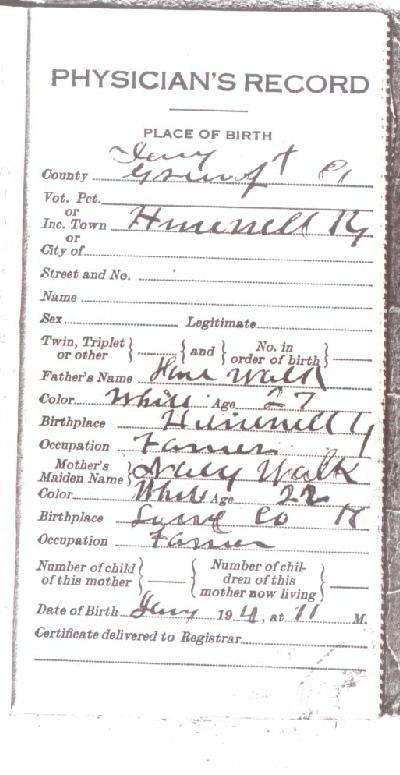 PHYSICIAN'S RECORD
PLACE OF BIRTH
County
Vot. Pct.
or
Inc. Town Hummell Ky
or
City of
Street and No.
Name
Sex Legitimate
Twin, Triplet or other } and { No. in order of birth }
Father's Name Walk
Color White Age 27
Birthplace Hummell Ky
Occupation Farmer
Mother's Maiden Name } Walk
Color White Age 22
Birthplace Co K
Occupation Farmer
Number of child of this mother } { Number of children of this mother now living }
Date of Birth 19 , at 11 M.
Certificate delivered to Registrar